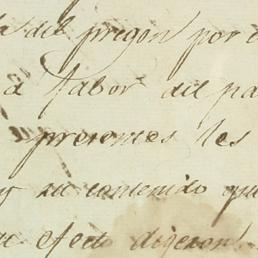 del pregon por
a fabor del pa
presomes les
y su contenido que
efecto digeron